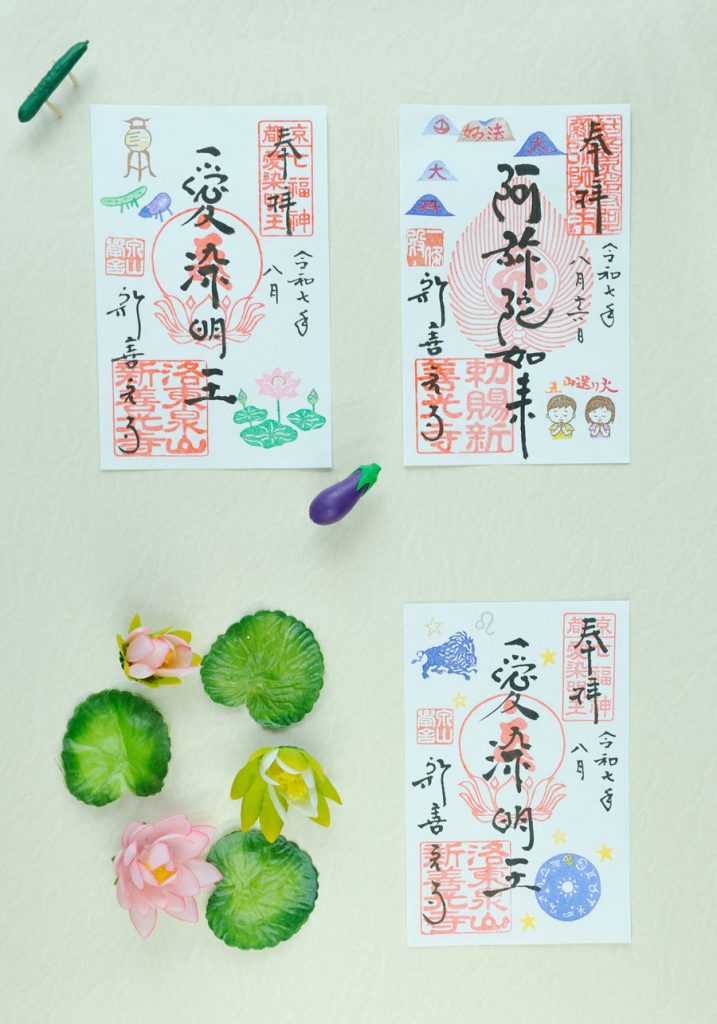 奉拝
京七福神
都愛染明王
令和七年
八月
愛染明王
新善光寺
洛東泉山
新善光寺
奉拝
令和七年
八月十六日
阿弥陀如来
妙法
大
大
新善光寺
勅賜新
善光寺
五山送り火
奉拝
京七福神
都愛染明王
令和七年
八月
愛染明王
新善光寺
洛東泉山
新善光寺